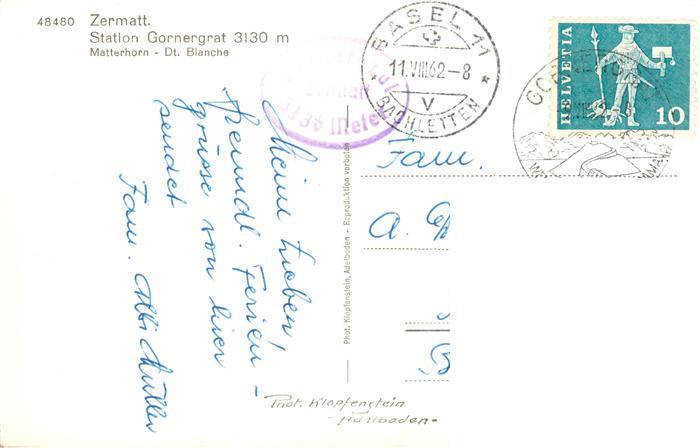 48480 Zermatt.
Station Gornergrat 3130 m
Matterhorn - Dt. Blanche
BASEL 11
11.VIII.62-8
V
BACHLETTEN
HELVETIA
10
Zermatt
3136 Meter
Meine Lieben,
freundl. Ferien-
grüsse von hier
sendet
Fam. Albi Müller
Fam.
A.
Phot. Klopfenstein, Adelboden - Reproduktion verboten
Phot. Klopfenstein
- Adelboden -